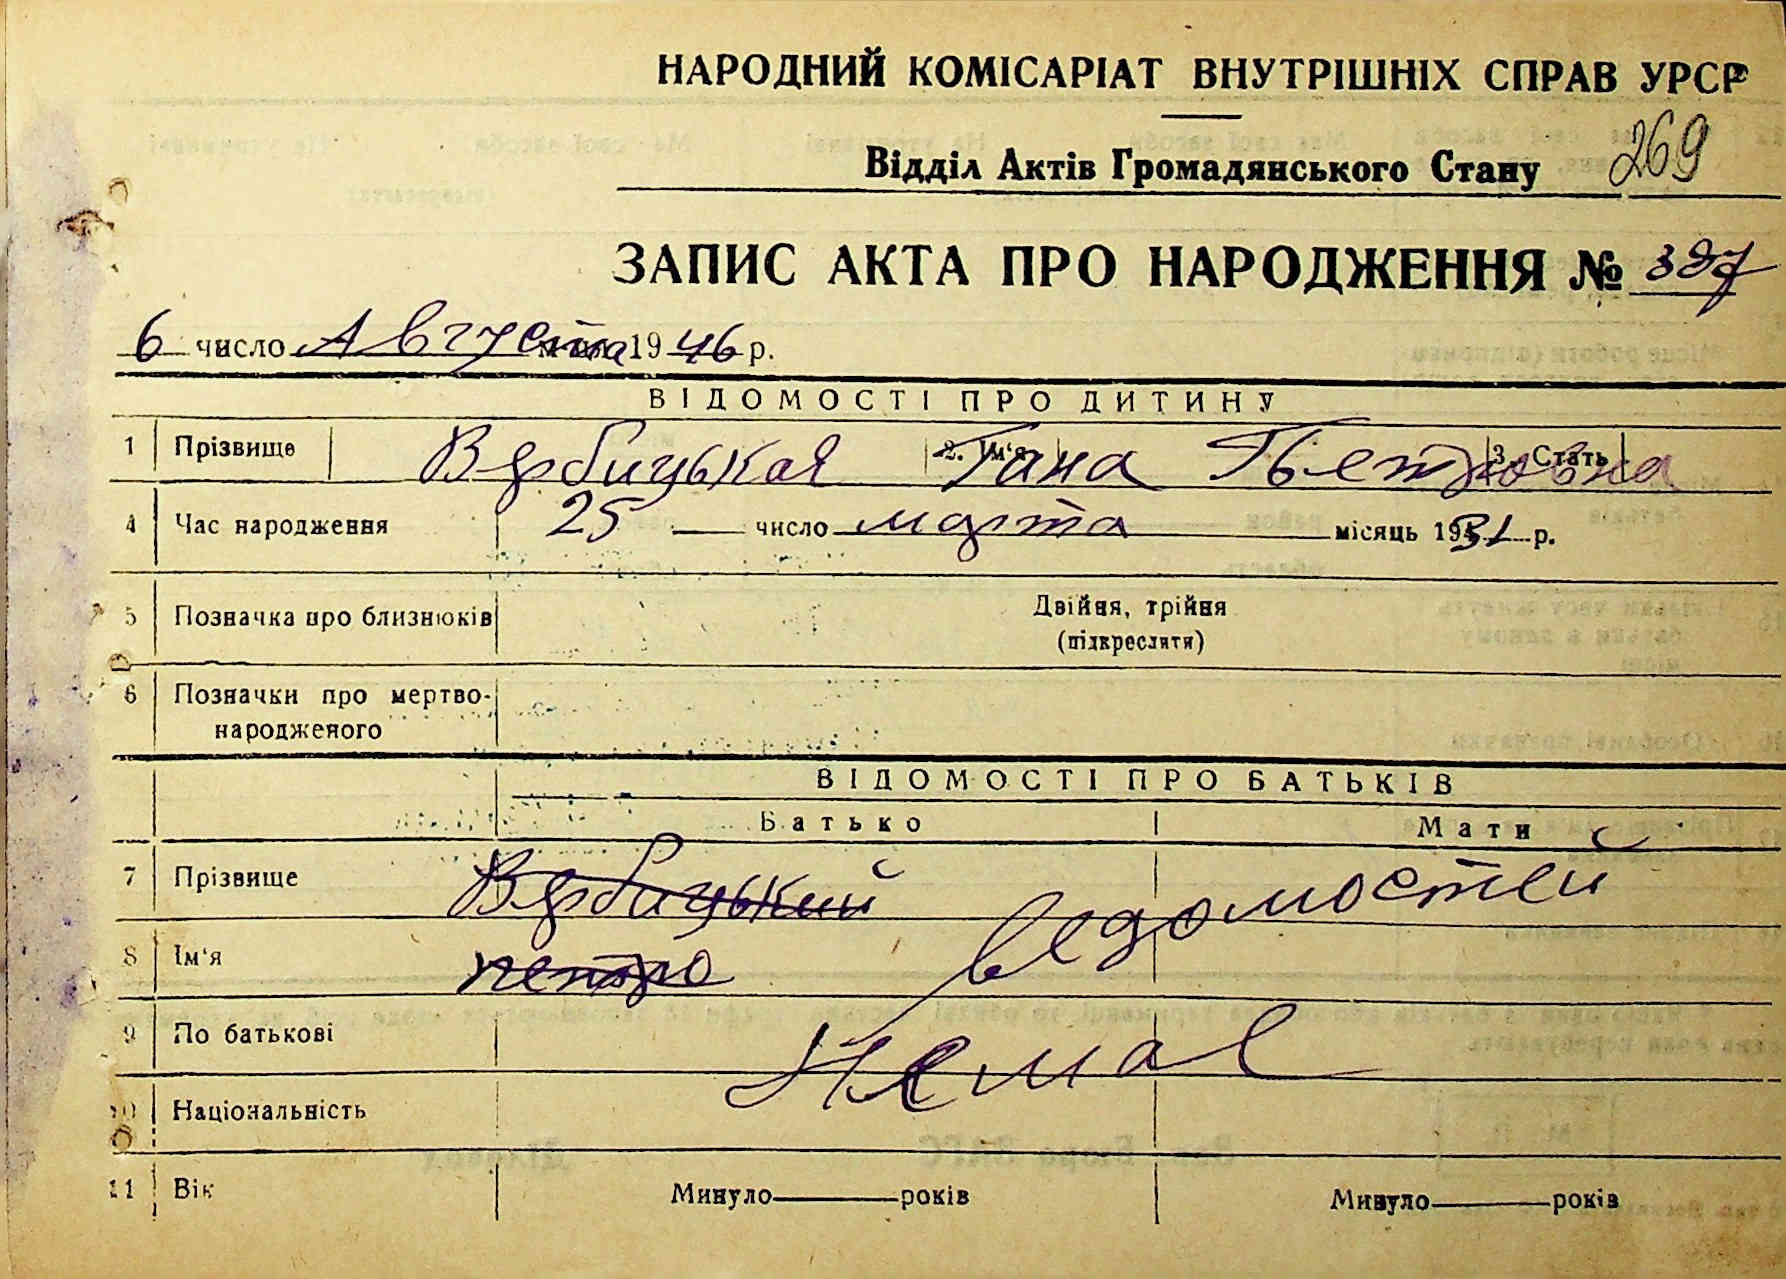 НАРОДНИЙ КОМІСАРІАТ ВНУТРІШНІХ СПРАВ УРСР
Відділ Актів Громадянського Стану 269
ЗАПИС АКТА ПРО НАРОДЖЕННЯ № 397
6 число Августа 1946 р.
ВІДОМОСТІ ПРО ДИТИНУ
1 Прізвище Вербицькая 2. Ім'я Гана Петровна 3. Стать
4 Час народження 25 число марта місяць 1931 р.
5 Позначка про близнюків Двійня, трійня
(підкреслити)
6 Позначки про мертво-
народженого
ВІДОМОСТІ ПРО БАТЬКІВ
Батько Мати
7 Прізвище Вербицький ведомостей
8 Ім'я петро
9 По батькові Немає
10 Національність
11 Вік Минуло років Минуло років